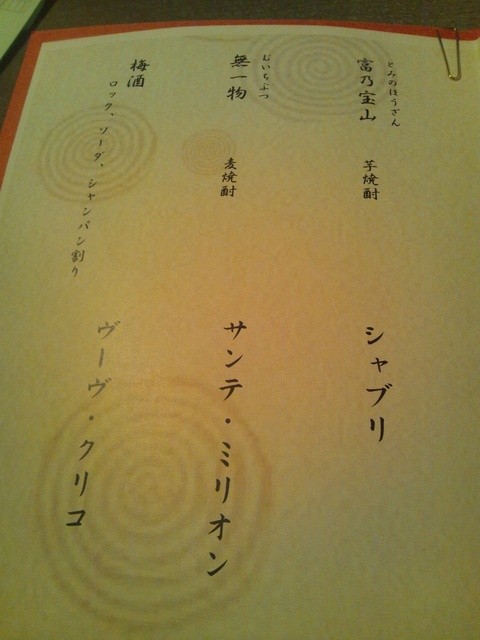 とみのほうざん
富乃宝山
芋焼酎
むいちぶつ
無一物
麦焼酎
梅酒
ロック、ソーダ、シャンパン割り
シャブリ
サンテ・ミリオン
ヴーヴ・クリコ